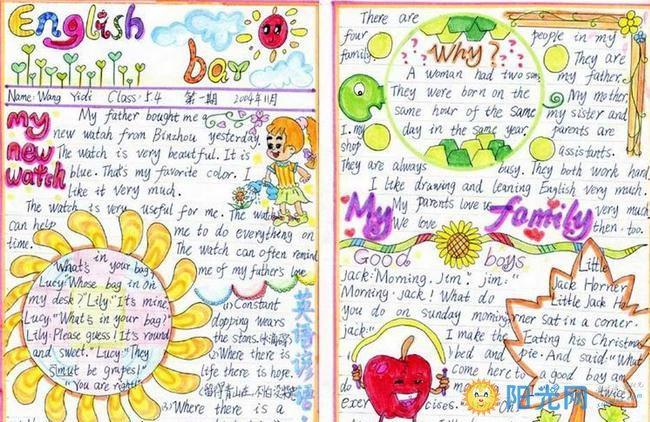 English
bar
Name: Wang Yidi Class: 5.4 第一期 2004年11月
My
new
watch
My father bought me a
new watah from Binzhou yesterday.
The watch is very beautiful. It is
blue. That's my favorite color. I
like it very much.
The watch is very useful for me. The watch
can help me to do everything on
time. The watch can often remind
me of my father's love
What's in your bag?
Lucy: Whose bag in on
my desk? Lily: "It's mine
Lucy: "What's in your bag?
Lily: Please guess! It's round
and sweet." Lucy: "They
must be grapes!
"You are right!"
英语谚语
(1) Constant
dopping wears
the stons.
(2) Where there is
life there is hope.
(留得青山在,不怕没柴
(3) Where there is a
There are
four people in my
family. They are
my father.
My mother,
I. my my sister and
shop parents are
assistants.
They are always busy. They both work hard.
I like drawing and leaning English very much.
My parents love us very much
We love then, too.
Why?
A woman had two sons
They were born on the
same hour of the same
day in the same year.
My family
Good boys
jack: "Morning, Jim." jim: "
Morning, jack! What do
you do on sunday morning
jack: "
I make the
bed and
do
exercises.
Little
Jack Horner
Little Jack Ho
rner sat in a corner.
Eating his Christmas
pie. And said: "What
a good boy am
come here to
阳光网